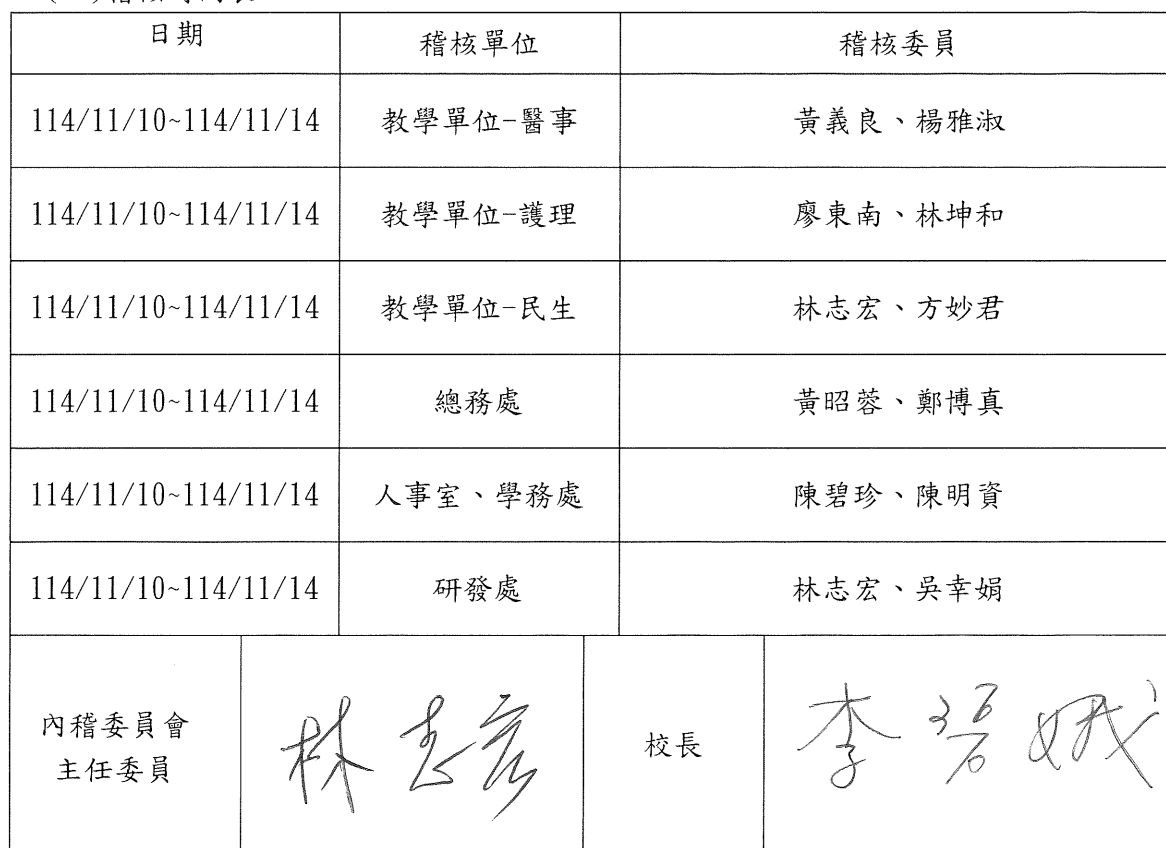 日期 稽核單位 稽核委員
114/11/10~114/11/14 教學單位-醫事 黃義良、楊雅淑
114/11/10~114/11/14 教學單位-護理 廖東南、林坤和
114/11/10~114/11/14 教學單位-民生 林志宏、方妙君
114/11/10~114/11/14 總務處 黃昭蓉、鄭博真
114/11/10~114/11/14 人事室、學務處 陳碧珍、陳明資
114/11/10~114/11/14 研發處 林志宏、吳幸娟
內稽委員會
主任委員 林志宏 校長 李碧娥